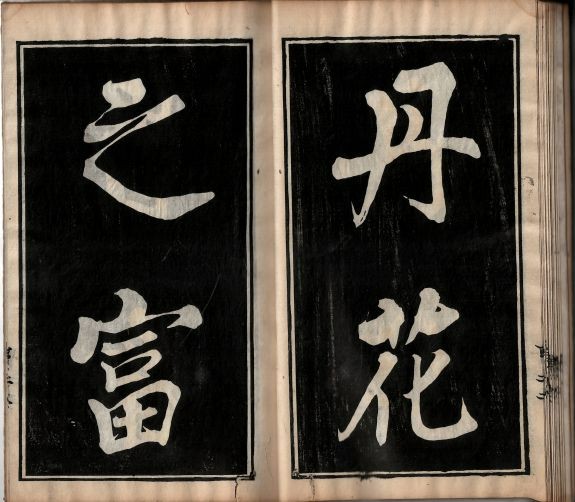 丹花
之富